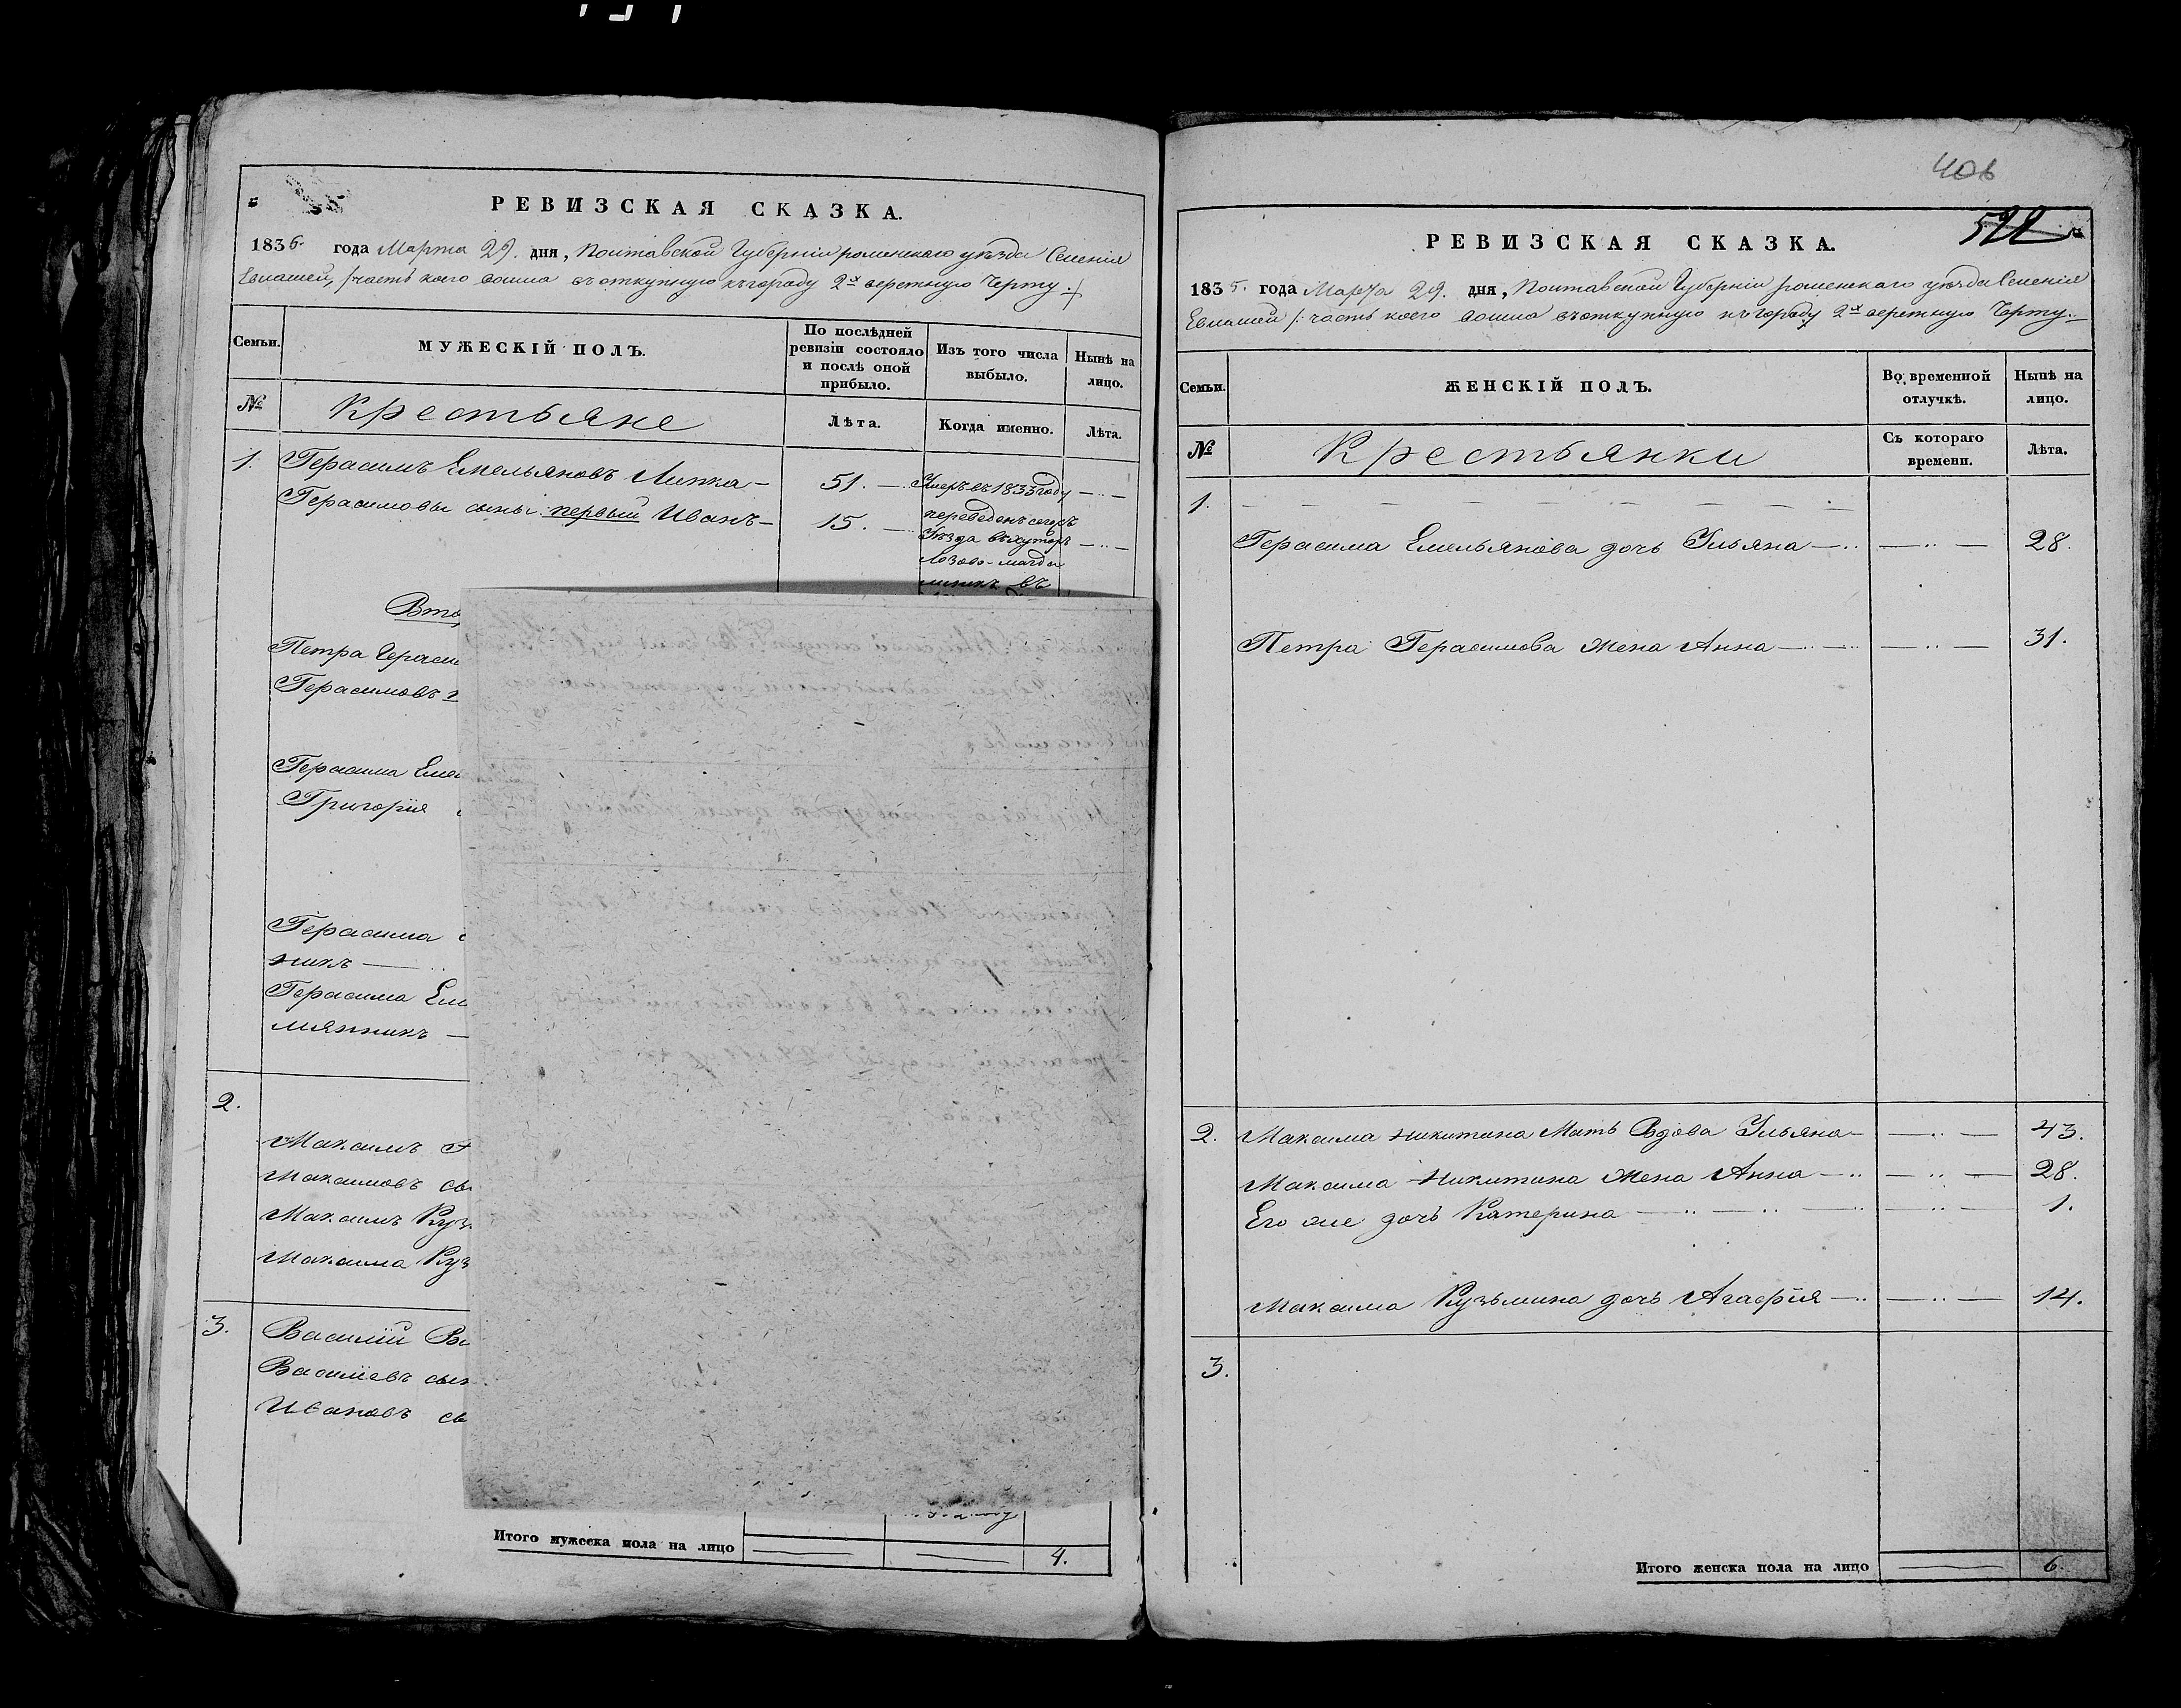 РЕВИЗСКАЯ СКАЗКА.
1836. года Марта 29. дня, Полтавской Губерніи роменскаго уезда Селенія
часть коего вошла въ откупную къ городу 2х верстную Черту.
Семьи.
МУЖЕСКІЙ ПОЛЪ.
По послѣдней ревизіи состояло и послѣ оной прибыло.
Изъ того числа выбыло.
Нынѣ на лицо.
№
Крестьяне
Лѣта.
Когда именно.
Лѣта.
1. Герасимъ Емельяновъ Липка 51. Умеръ въ 1833 году
Герасимовы сыны: первый Иванъ 15. переведенъ сего
уезда въ хуторъ
Лозово-
въ
Вто
Петра Гераси
Герасимовъ
Герасима Емел
Григорія
Герасима
никъ
Герасима Ем
мянникъ
2.
Максимъ
Максимовъ сы
Максимъ Куз
Максима Куз
3. Василій Ва
Василіевъ сын
Ивановъ сы
году
Итого мужеска пола на лицо 4.
406
522
РЕВИЗСКАЯ СКАЗКА.
1835. года Марта 29. дня, Полтавской Губерніи роменскаго уезда Селенія
часть коего вошла въ откупную къ городу 2х верстную Черту.
Семьи.
ЖЕНСКІЙ ПОЛЪ.
Во временной отлучкѣ.
Нынѣ на лицо.
№
Крестьянки
Съ котораго времени.
Лѣта.
1.
Герасима Емельянова дочь Ульяна 28.
Петра Герасимова жена Анна 31.
2. Максима Никитина Мать Вдова Ульяна 43.
Максима Никитина жена Анна 28.
Его же дочь Катерина 1.
Максима Кузьмина дочь Агафія 14.
3.
Итого женска пола на лицо 6.